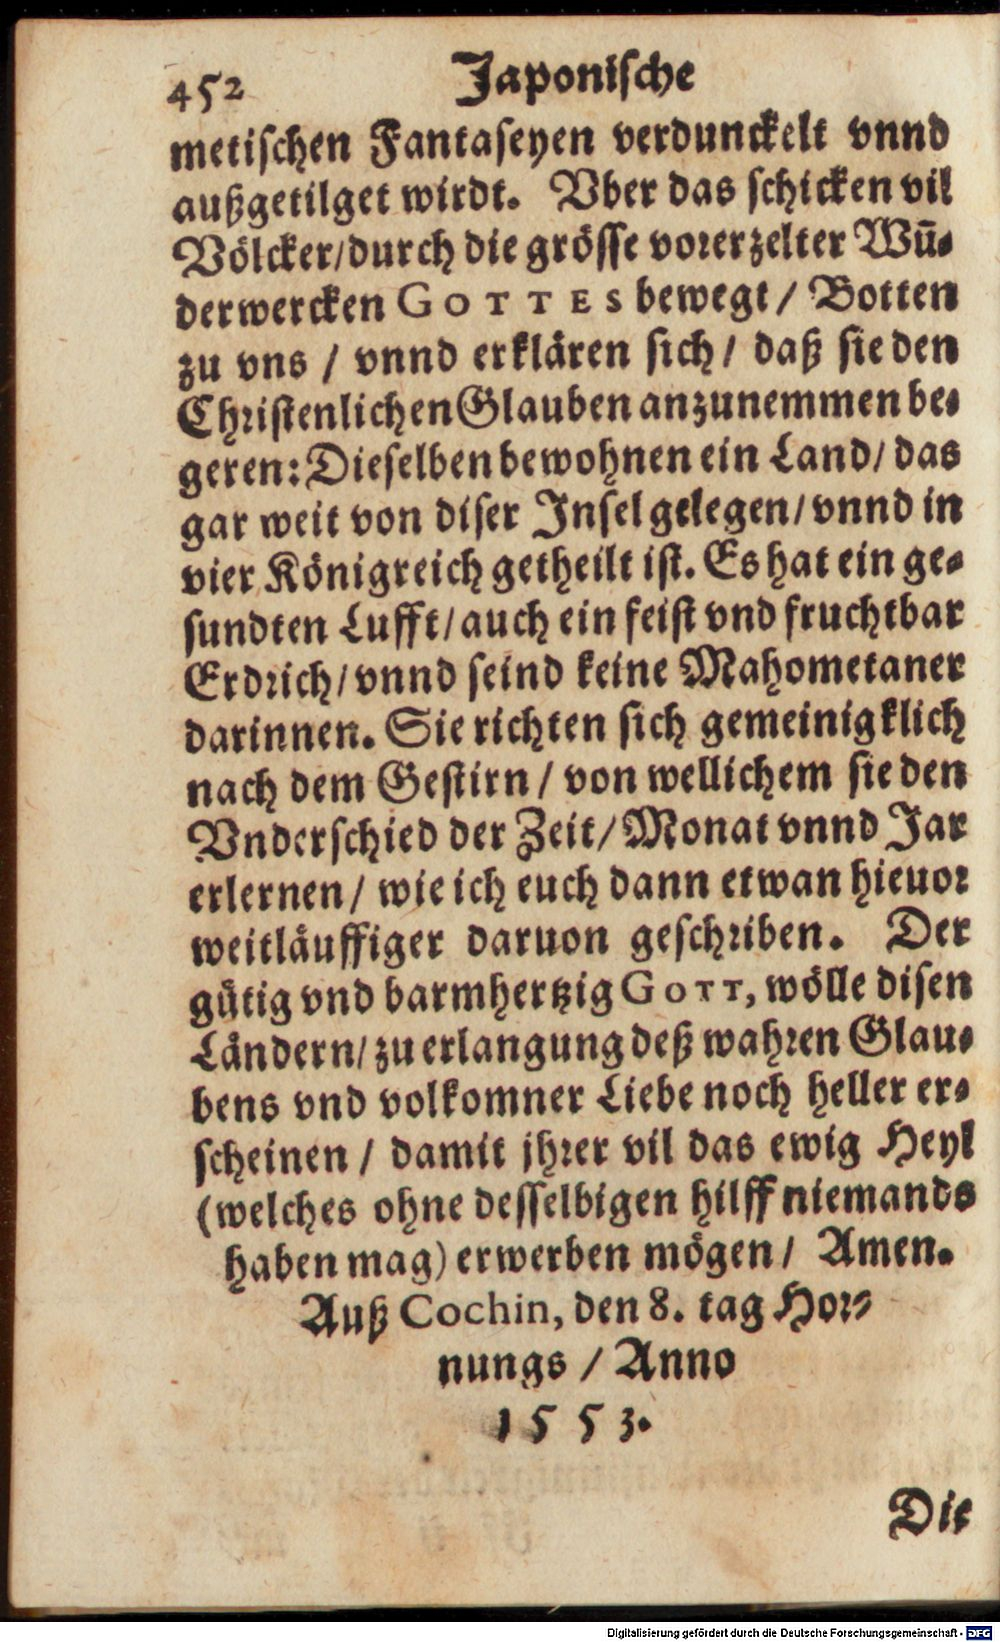 452 Japonische
metischen Fantaseyen verdunckelt vnnd
außgetilget wirdt. Vber das schicken vil
Völcker/durch die grösse vorerzelter Wuñ-
derwercken GOTTES bewegt / Botten
zu vns / vnnd erklären sich / daß sie den
Christenlichen Glauben anzunemmen be-
geren: Dieselben bewohnen ein Land/ das
gar weit von diser Insel gelegen/ vnnd in
vier Königreich getheilt ist. Es hat ein ge-
sundten Lufft/ auch ein feist vnd fruchtbar
Erdrich/ vnnd seind keine Mahometaner
darinnen. Sie richten sich gemeinigklich
nach dem Gestirn / von wellichem sie den
Vnderschied der Zeit/ Monat vnnd Jar
erlernen / wie ich euch dann etwan hieuor
weitläuffiger daruon geschriben. Der
gütig vnd barmhertzig GOTT, wölle disen
Ländern/ zu erlangung deß wahren Glau-
bens vnd volkomner Liebe noch heller er-
scheinen / damit jhrer vil das ewig Heyl
(welches ohne desselbigen hilff niemands
haben mag) erwerben mögen / Amen.
Auß Cochin, den 8. tag Hor-
nungs / Anno
1553.
Die
Digitalisierung gefördert durch die Deutsche Forschungsgemeinschaft - DFG